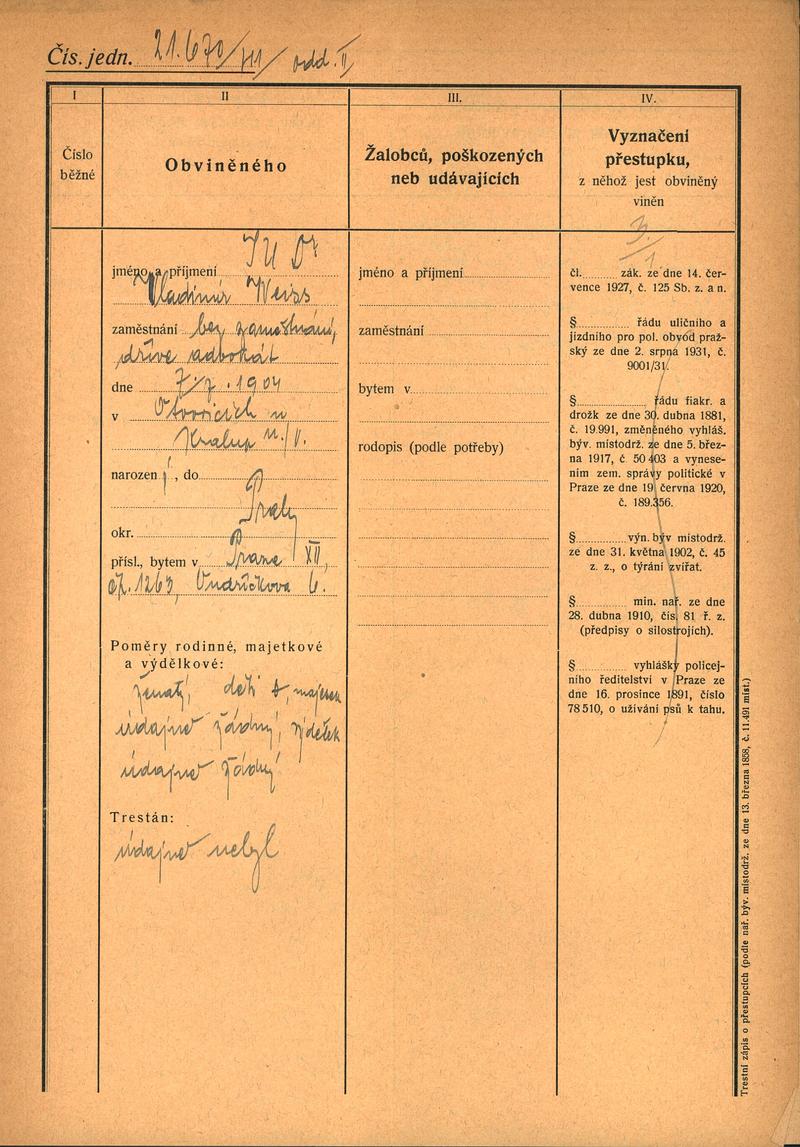 Čís. jedn. 21.670/VII/ odd. II/
I
Číslo
běžné
II
Obviněného
jméno a příjmení JU Dr
Vladimír Weiss
zaměstnání bez zaměstnání,
dříve advokát
dne 7./7. 1904
v Otvovicích u
Kralup n./V.
narozen ý, do
Prahy
okr.
přísl., bytem v Praze XII,
čp. 1263, Ondříčkova 6.
Poměry rodinné, majetkové
a výdělkové:
ženatý, dětí 0, majetek
údajně žádný, výdělek
údajně žádný
Trestán:
údajně nebyl
III.
Žalobců, poškozených
neb udávajících
jméno a příjmení
zaměstnání
bytem v
rodopis (podle potřeby)
IV.
Vyznačení
přestupku,
z něhož jest obviněný
viněn
3/1
čl. zák. ze dne 14. čer-
vence 1927, č. 125 Sb. z. a n.
§ řádu uličního a
jízdního pro pol. obvod praž-
ský ze dne 2. srpna 1931, č.
9001/31.
§ řádu fiakr. a
drožk ze dne 30. dubna 1881,
č. 19.991, změněného vyhláš.
býv. místodrž. ze dne 5. břez-
na 1917, č. 50403 a vynese-
ním zem. správy politické v
Praze ze dne 19 června 1920,
č. 189.356.
§ výn. býv místodrž.
ze dne 31. května 1902, č. 45
z. z., o týrání zvířat.
§ min. nař. ze dne
28. dubna 1910, čís. 81 ř. z.
(předpisy o silostrojích).
§ vyhlášky policej-
ního ředitelství v Praze ze
dne 16. prosince 1891, číslo
78510, o užívání psů k tahu.
Trestní zápis o přestupcích (podle nař. býv. místodrž. ze dne 13. března 1858, č. 11.491 míst.)